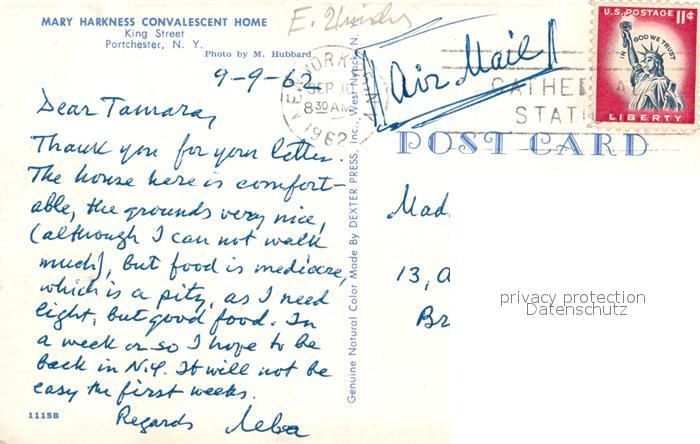 MARY HARKNESS CONVALESCENT HOME
King Street
Portchester, N. Y.
Photo by M. Hubbard
9-9-62
Dear Tamara,
Thank you for your letter.
The house here is comfort-
able, the grounds very nice,
(although I can not walk
much), but food is mediocre,
which is a pity, as I need
light, but good food. In
a week or so I hope to be
back in N.Y. It will not be
easy the first weeks.
Regards
1115B
Genuine Natural Color Made By DEXTER PRESS, Inc., West Nyack, N.
NEW YORK, N.Y.
SEP 10
8 30 AM
1962
Air Mail
CATHEDRAL
STATION
U.S. POSTAGE 11¢
IN GOD WE TRUST
LIBERTY
POST CARD
Mad.
13, A
Br
privacy protection
Datenschutz